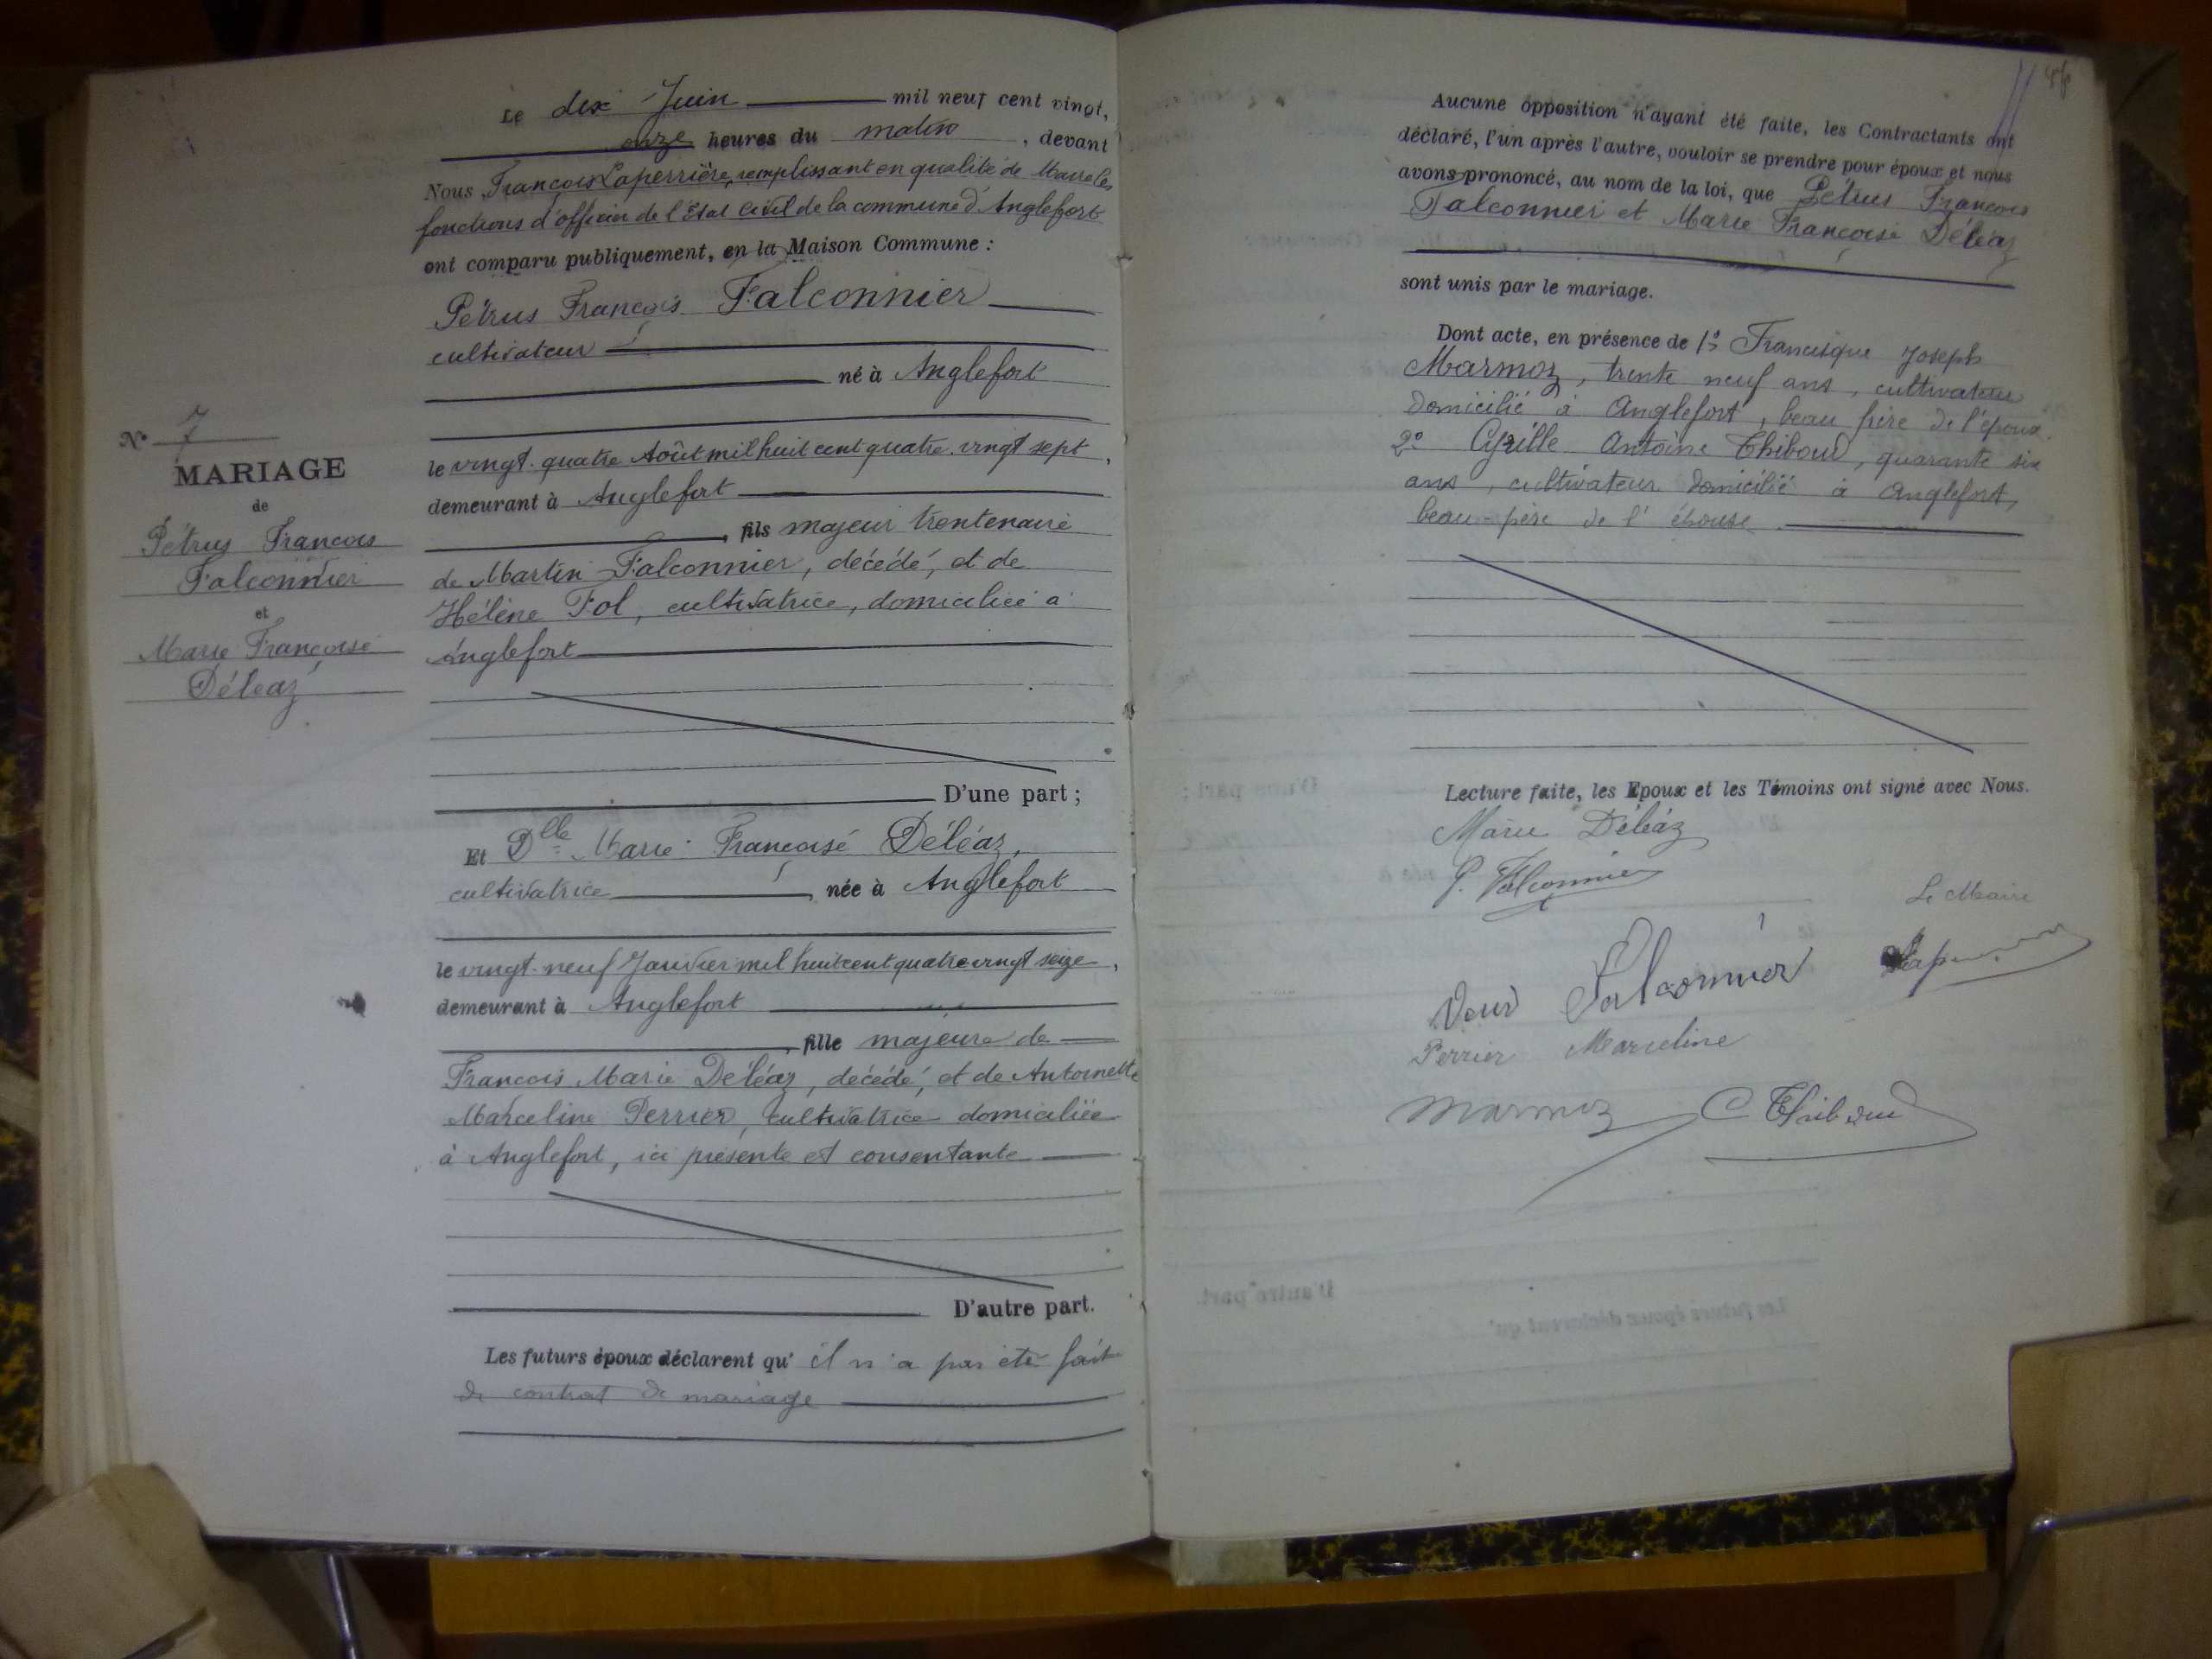 Le dix Juin mil neuf cent vingt,
onze heures du matin, devant
Nous François Laperrière, remplissant en qualité de Maire les
fonctions d'officier de l'Etat Civil de la commune d'Anglefort
ont comparu publiquement, en la Maison Commune :
Pétrus François Falconnier
cultivateur
né à Anglefort
le vingt-quatre Août mil huit cent quatre-vingt sept,
demeurant à Anglefort
, fils majeur trentenaire
de Martin Falconnier, décédé, et de
Hélène Fol, cultivatrice, domiciliée à
Anglefort
D'une part ;
Et Dlle Marie Françoise Déléaz,
cultivatrice, née à Anglefort
le vingt-neuf Janvier mil huit cent quatre vingt seize,
demeurant à Anglefort
, fille majeure de
François Marie Deléaz, décédé, et de Antoinette
Marceline Perrier, cultivatrice domiciliée
à Anglefort, ici présente et consentante
D'autre part.
Les futurs époux déclarent qu'il n'a pas été fait
de contrat de mariage
N° 7
MARIAGE
de
Pétrus François
Falconnier
et
Marie Françoise
Déléaz
Aucune opposition n'ayant été faite, les Contractants ont
déclaré, l'un après l'autre, vouloir se prendre pour époux et nous
avons prononcé, au nom de la loi, que Pétrus François
Falconnier et Marie Françoise Déléaz
sont unis par le mariage.
Dont acte, en présence de 1° Francisque Joseph
Marmoz, trente neuf ans, cultivateur
domicilié à Anglefort, beau frère de l'époux.
2° Cyrille Antoine Thiboud, quarante six
ans, cultivateur domicilié à Anglefort,
beau-père de l'épouse
Lecture faite, les Epoux et les Témoins ont signé avec Nous.
Marie Déléaz
P. Falconnier
Le Maire
Falconnier
Perrier Marceline
Marmoz C Thiboud